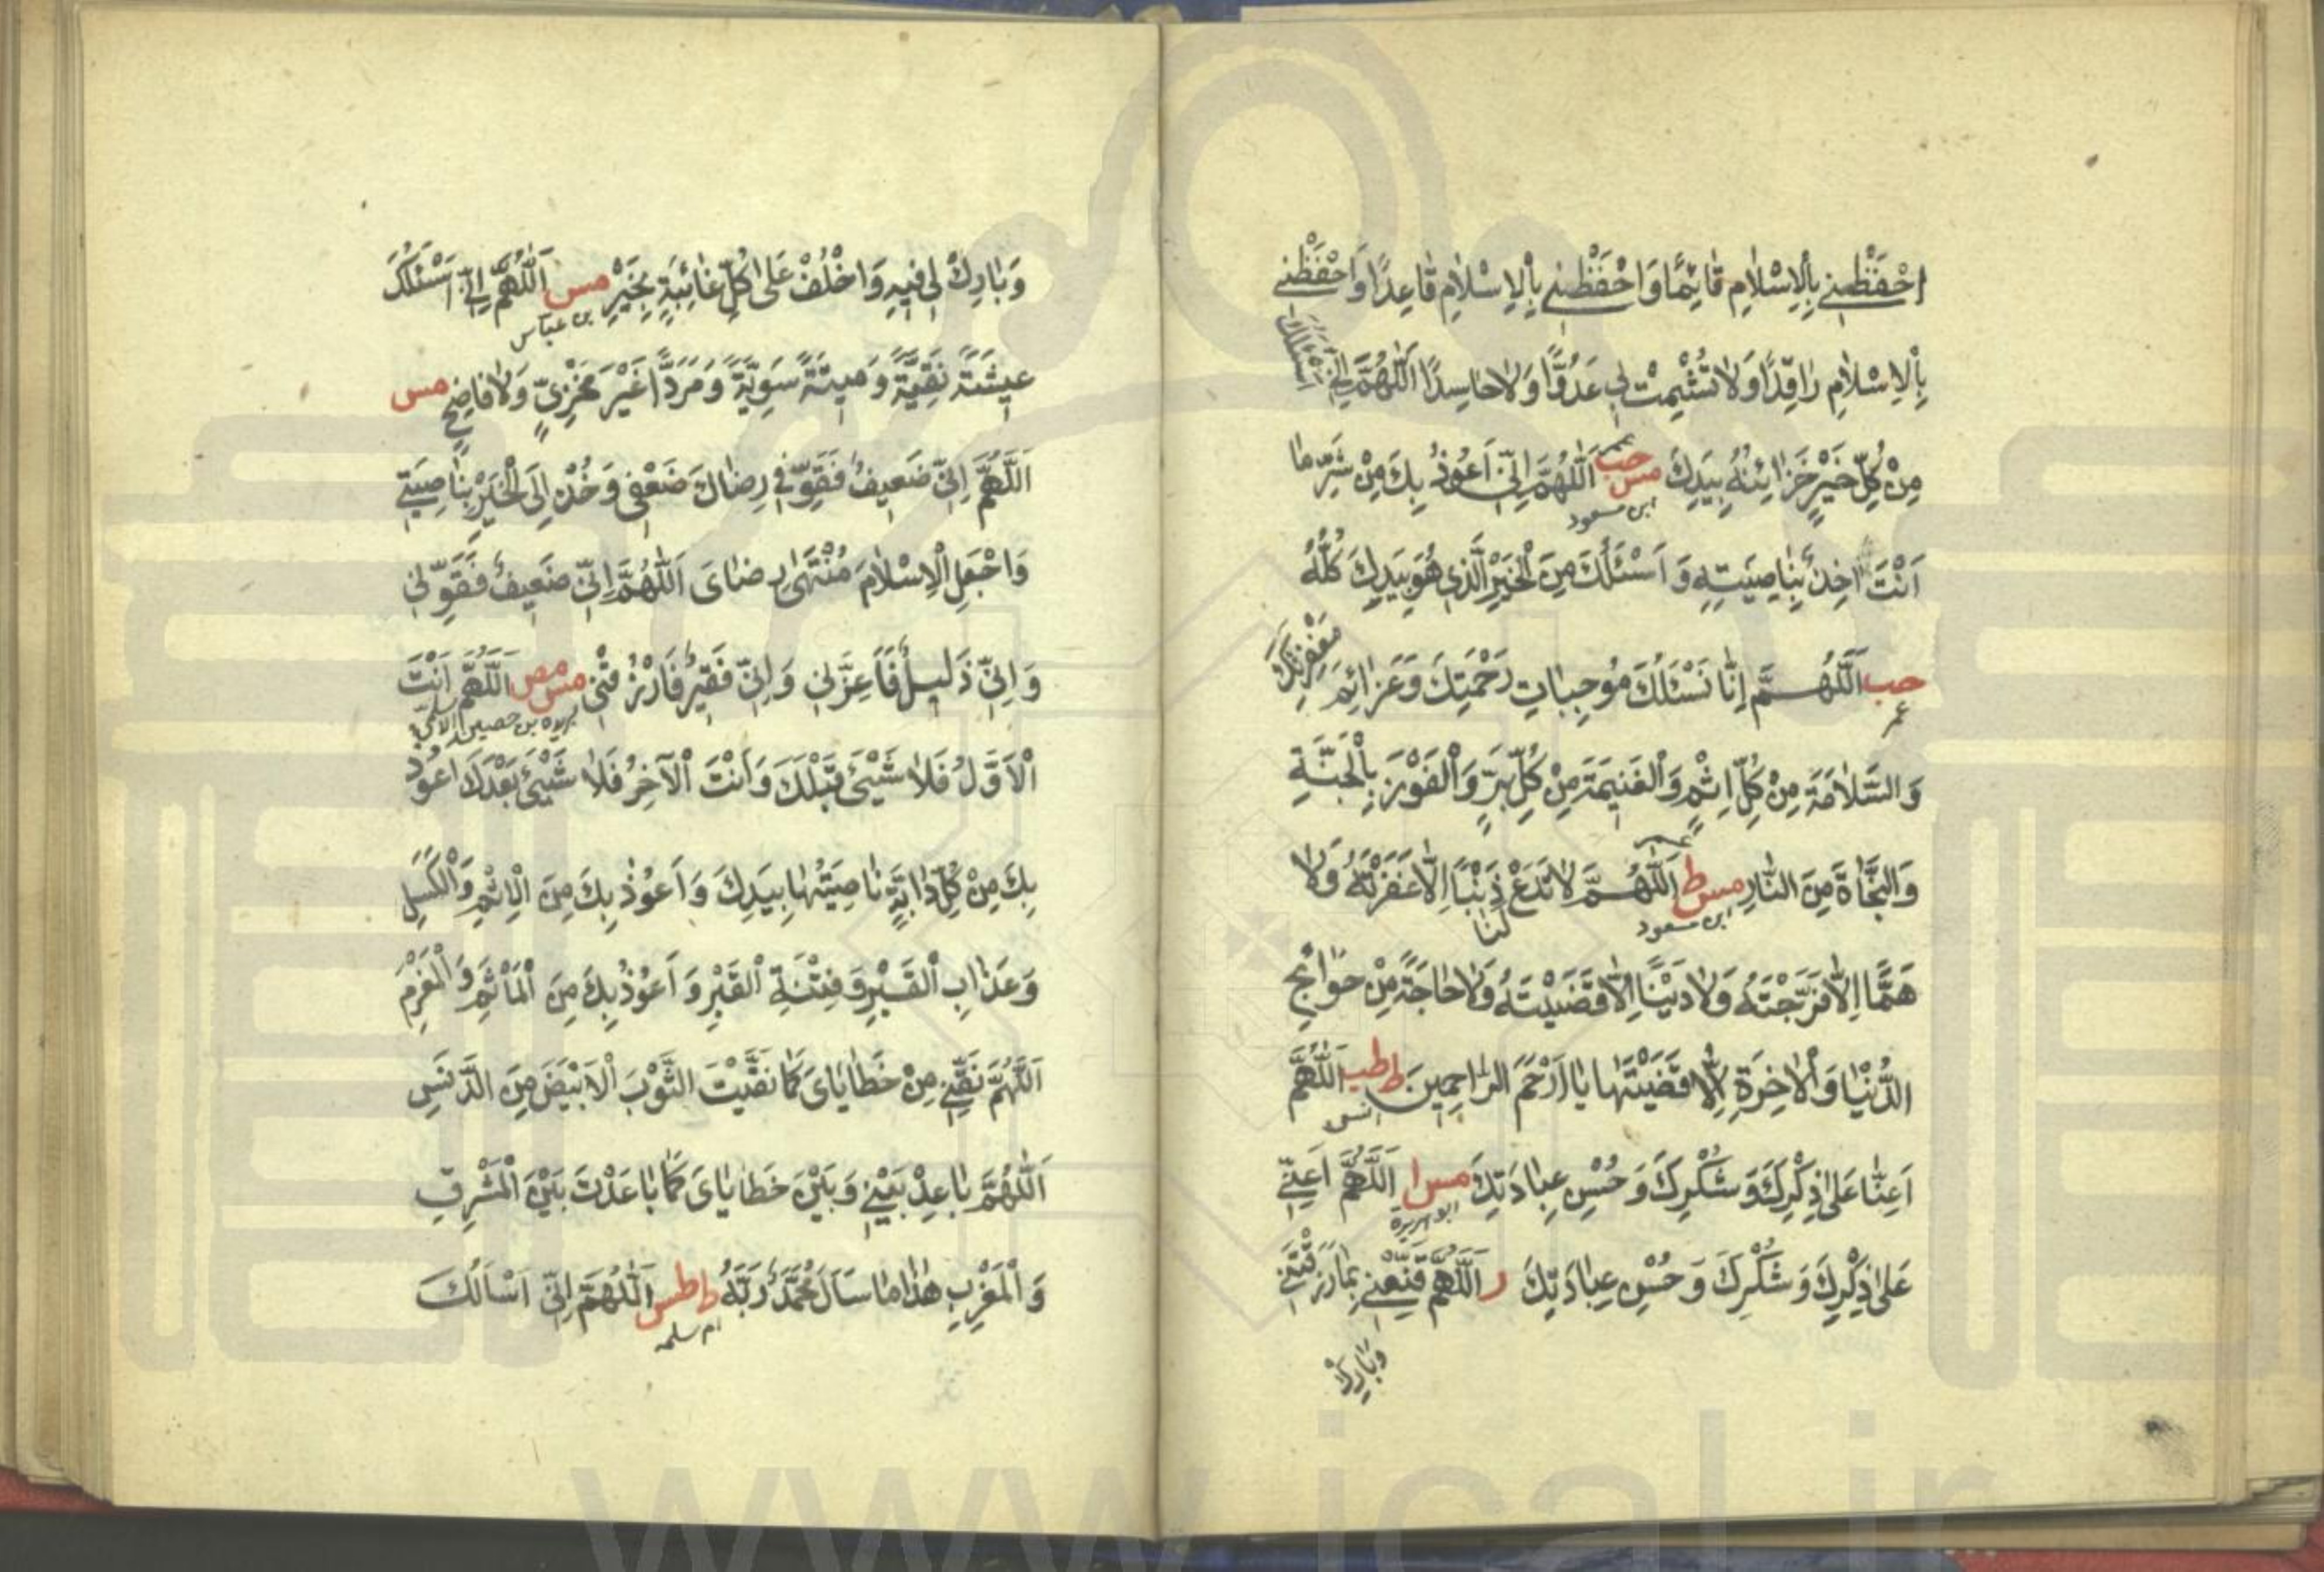 اِحْفَظْنِي بِالْاِسْلَامِ قَائِمًا وَاحْفَظْنِي بِالْاِسْلَامِ قَاعِدًا وَاحْفَظْنِي
بِالْاِسْلَامِ رَاقِدًا وَلَا تُشْمِتْ بِي عَدُوًّا وَلَا حَاسِدًا اَللّٰهُمَّ اِنِّي اَسْئَلُكَ
مِنْ كُلِّ خَيْرٍ خَزَائِنُهُ بِيَدِكَ مس حب اَللّٰهُمَّ اِنِّي اَعُوْذُ بِكَ مِنْ شَرِّ مَا
ابن مسعود
اَنْتَ اٰخِذٌ بِنَاصِيَتِهِ وَ اَسْئَلُكَ مِنَ الْخَيْرِ الَّذِي هُوَ بِيَدِكَ كُلُّهُ
حب اَللّٰهُمَّ اِنَّا نَسْئَلُكَ مُوْجِبَاتِ رَحْمَتِكَ وَعَزَائِمَ مَغْفِرَتِكَ
عمر
وَالسَّلَامَةَ مِنْ كُلِّ اِثْمٍ وَالْغَنِيمَةَ مِنْ كُلِّ بِرٍّ وَالْفَوْزَ بِالْجَنَّةِ
وَالنَّجَاةَ مِنَ النَّارِ مس ط اَللّٰهُمَّ لَا تَدَعْ لَنَا ذَنْبًا اِلَّا غَفَرْتَهُ وَلَا
ابن مسعود
هَمًّا اِلَّا فَرَّجْتَهُ وَلَا دَيْنًا اِلَّا قَضَيْتَهُ وَلَا حَاجَةً مِنْ حَوَائِجِ
الدُّنْيَا وَالْاٰخِرَةِ اِلَّا قَضَيْتَهَا يَا اَرْحَمَ الرَّاحِمِينَ ط طب اَللّٰهُمَّ
انس
اَعِنَّا عَلَىٰ ذِكْرِكَ وَ شُكْرِكَ وَ حُسْنِ عِبَادَتِكَ مس ا اَللّٰهُمَّ اَعِنِّي
ابو هريرة
عَلَىٰ ذِكْرِكَ وَ شُكْرِكَ وَ حُسْنِ عِبَادَتِكَ ر اَللّٰهُمَّ قَنِّعْنِي بِمَا رَزَقْتَنِي
وَبَارِكْ
وَبَارِكْ لِي فِيهِ وَاخْلُفْ عَلَىٰ كُلِّ غَائِبَةٍ بِخَيْرٍ مس اَللّٰهُمَّ اِنِّي اَسْئَلُكَ
بن عباس
عِيشَةً نَقِيَّةً وَ مِيتَةً سَوِيَّةً وَ مَرَدًّا غَيْرَ مَخْزِيٍّ وَلَا فَاضِحٍ مس
اَللّٰهُمَّ اِنِّي ضَعِيفٌ فَقَوِّ فِي رِضَاكَ ضَعْفِي وَخُذْ اِلَى الْخَيْرِ بِنَاصِيَتِي
وَاجْعَلِ الْاِسْلَامَ مُنْتَهٰى رِضَايَ اَللّٰهُمَّ اِنِّي ضَعِيفٌ فَقَوِّنِي
وَ اِنِّي ذَلِيلٌ فَاَعِزَّنِي وَ اِنِّي فَقِيرٌ فَارْزُقْنِي مس مص اَللّٰهُمَّ اَنْتَ
بريده بن حصيب الاسلمي
الْاَوَّلُ فَلَا شَيْئَ قَبْلَكَ وَ اَنْتَ الْاٰخِرُ فَلَا شَيْئَ بَعْدَكَ اَعُوْذُ
بِكَ مِنْ كُلِّ دَابَّةٍ نَاصِيَتُهَا بِيَدِكَ وَ اَعُوْذُ بِكَ مِنَ الْاِثْمِ وَالْكَسَلِ
وَعَذَابِ الْقَبْرِ وَ فِتْنَةِ الْقَبْرِ وَ اَعُوْذُ بِكَ مِنَ الْمَأْثَمِ وَ الْمَغْرَمِ
اَللّٰهُمَّ نَقِّنِي مِنْ خَطَايَايَ كَمَا نَقَّيْتَ الثَّوْبَ الْاَبْيَضَ مِنَ الدَّنَسِ
اَللّٰهُمَّ بَاعِدْ بَيْنِي وَ بَيْنَ خَطَايَايَ كَمَا بَاعَدْتَ بَيْنَ الْمَشْرِقِ
وَ الْمَغْرِبِ هٰذَا مَا سَاَلَ مُحَمَّدٌ رَبَّهُ ط طس اَللّٰهُمَّ اِنِّي اَسْاَلُكَ
ام سلمه
www.ical.ir